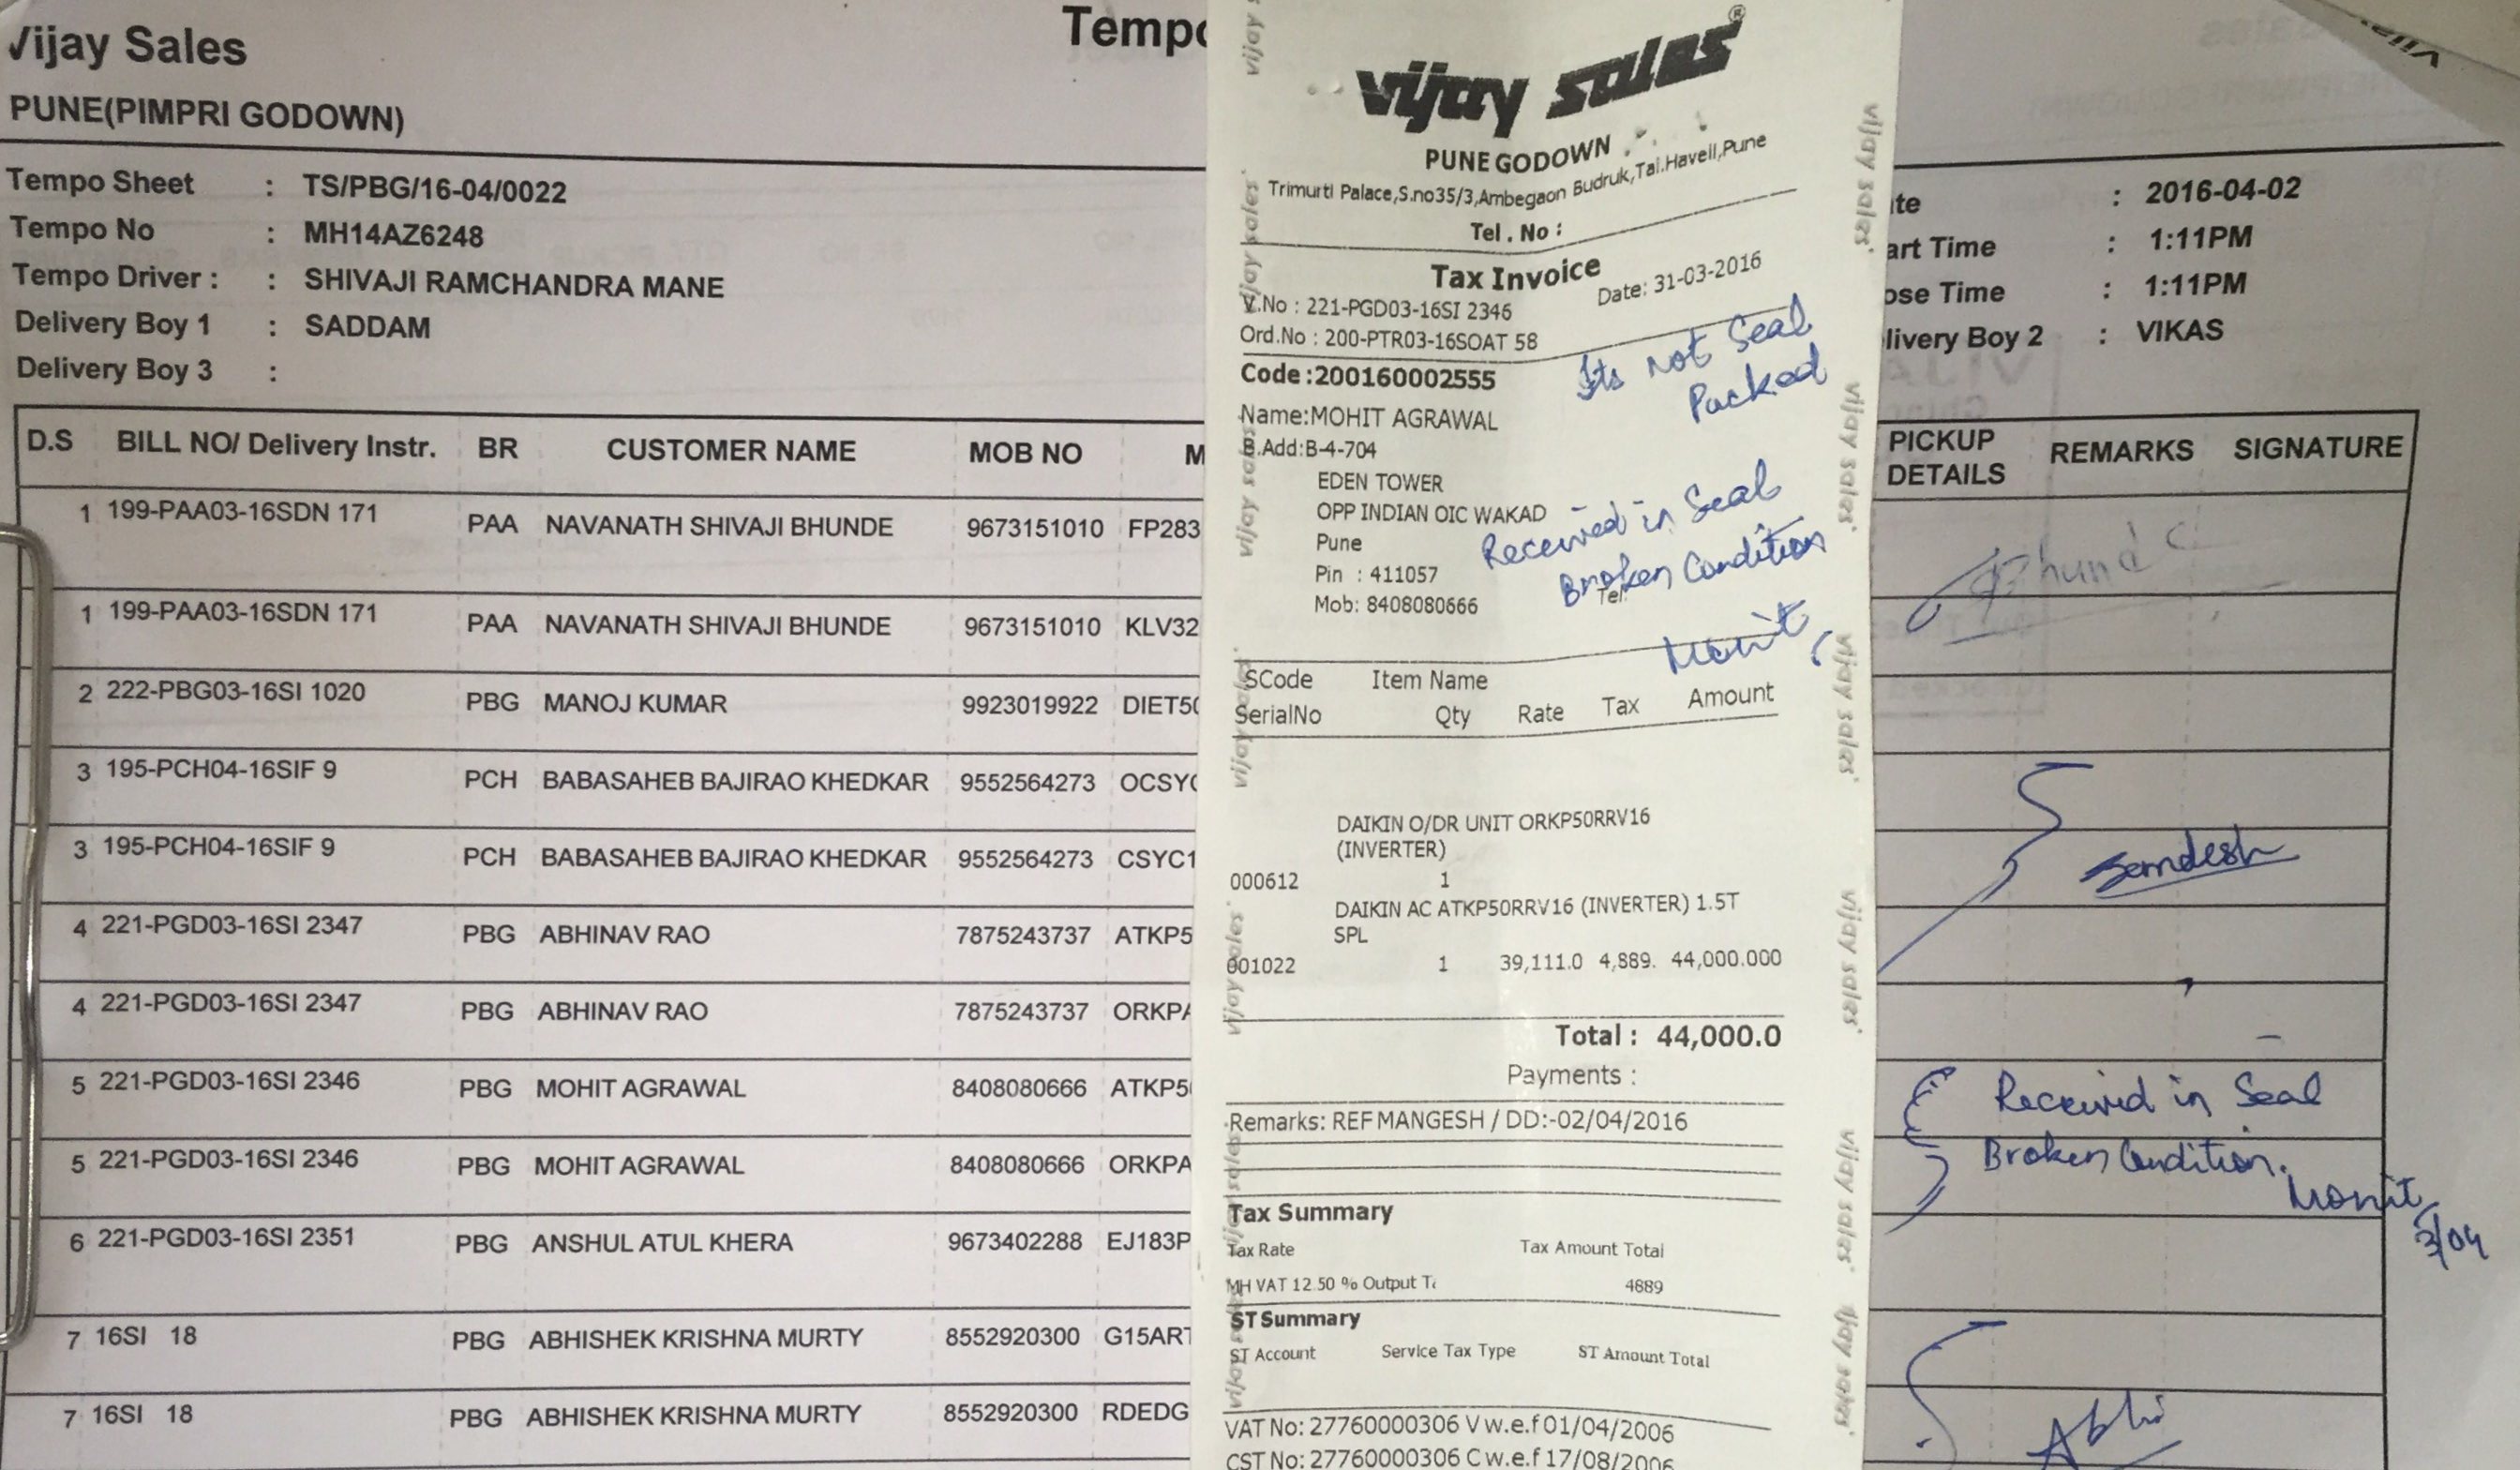 Vijay Sales
PUNE(PIMPRI GODOWN)
Tempo
Tempo Sheet : TS/PBG/16-04/0022
Tempo No : MH14AZ6248
Tempo Driver : : SHIVAJI RAMCHANDRA MANE
Delivery Boy 1 : SADDAM
Delivery Boy 3 :
te : 2016-04-02
art Time : 1:11PM
ose Time : 1:11PM
livery Boy 2 : VIKAS
D.S BILL NO/ Delivery Instr. BR CUSTOMER NAME MOB NO M
PICKUP DETAILS REMARKS SIGNATURE
1 199-PAA03-16SDN 171 PAA NAVANATH SHIVAJI BHUNDE 9673151010 FP283
1 199-PAA03-16SDN 171 PAA NAVANATH SHIVAJI BHUNDE 9673151010 KLV32
2 222-PBG03-16SI 1020 PBG MANOJ KUMAR 9923019922 DIET50
3 195-PCH04-16SIF 9 PCH BABASAHEB BAJIRAO KHEDKAR 9552564273 OCSYC
3 195-PCH04-16SIF 9 PCH BABASAHEB BAJIRAO KHEDKAR 9552564273 CSYC1
Samdesh
4 221-PGD03-16SI 2347 PBG ABHINAV RAO 7875243737 ATKP5
4 221-PGD03-16SI 2347 PBG ABHINAV RAO 7875243737 ORKPA
5 221-PGD03-16SI 2346 PBG MOHIT AGRAWAL 8408080666 ATKP50
5 221-PGD03-16SI 2346 PBG MOHIT AGRAWAL 8408080666 ORKPA
Received in Seal
Broken Condition.
Mohit
3/04
6 221-PGD03-16SI 2351 PBG ANSHUL ATUL KHERA 9673402288 EJ183P
7 16SI 18 PBG ABHISHEK KRISHNA MURTY 8552920300 G15ART
7 16SI 18 PBG ABHISHEK KRISHNA MURTY 8552920300 RDEDG
Abhi
vijay sales®
PUNE GODOWN
Trimurti Palace,S.no35/3,Ambegaon Budruk,Tal.Haveli,Pune
Tel . No :
Tax Invoice
V.No : 221-PGD03-16SI 2346 Date: 31-03-2016
Ord.No : 200-PTR03-16SOAT 58
Its not Seal
Packed
Code :200160002555
Name:MOHIT AGRAWAL
B.Add:B-4-704
EDEN TOWER
OPP INDIAN OIC WAKAD
Pune
Pin : 411057
Mob: 8408080666 Tel:
Received in Seal
Broken Condition
Mohit
SCode Item Name
SerialNo Qty Rate Tax Amount
DAIKIN O/DR UNIT ORKP50RRV16
(INVERTER)
000612 1
DAIKIN AC ATKP50RRV16 (INVERTER) 1.5T
SPL
001022 1 39,111.0 4,889. 44,000.000
Total : 44,000.0
Payments :
Remarks: REF MANGESH / DD:-02/04/2016
Tax Summary
Tax Rate Tax Amount Total
MH VAT 12.50 % Output Ta 4889
ST Summary
ST Account Service Tax Type ST Amount Total
VAT No: 27760000306 V w.e.f 01/04/2006
CST No: 27760000306 C w.e.f 17/08/2006